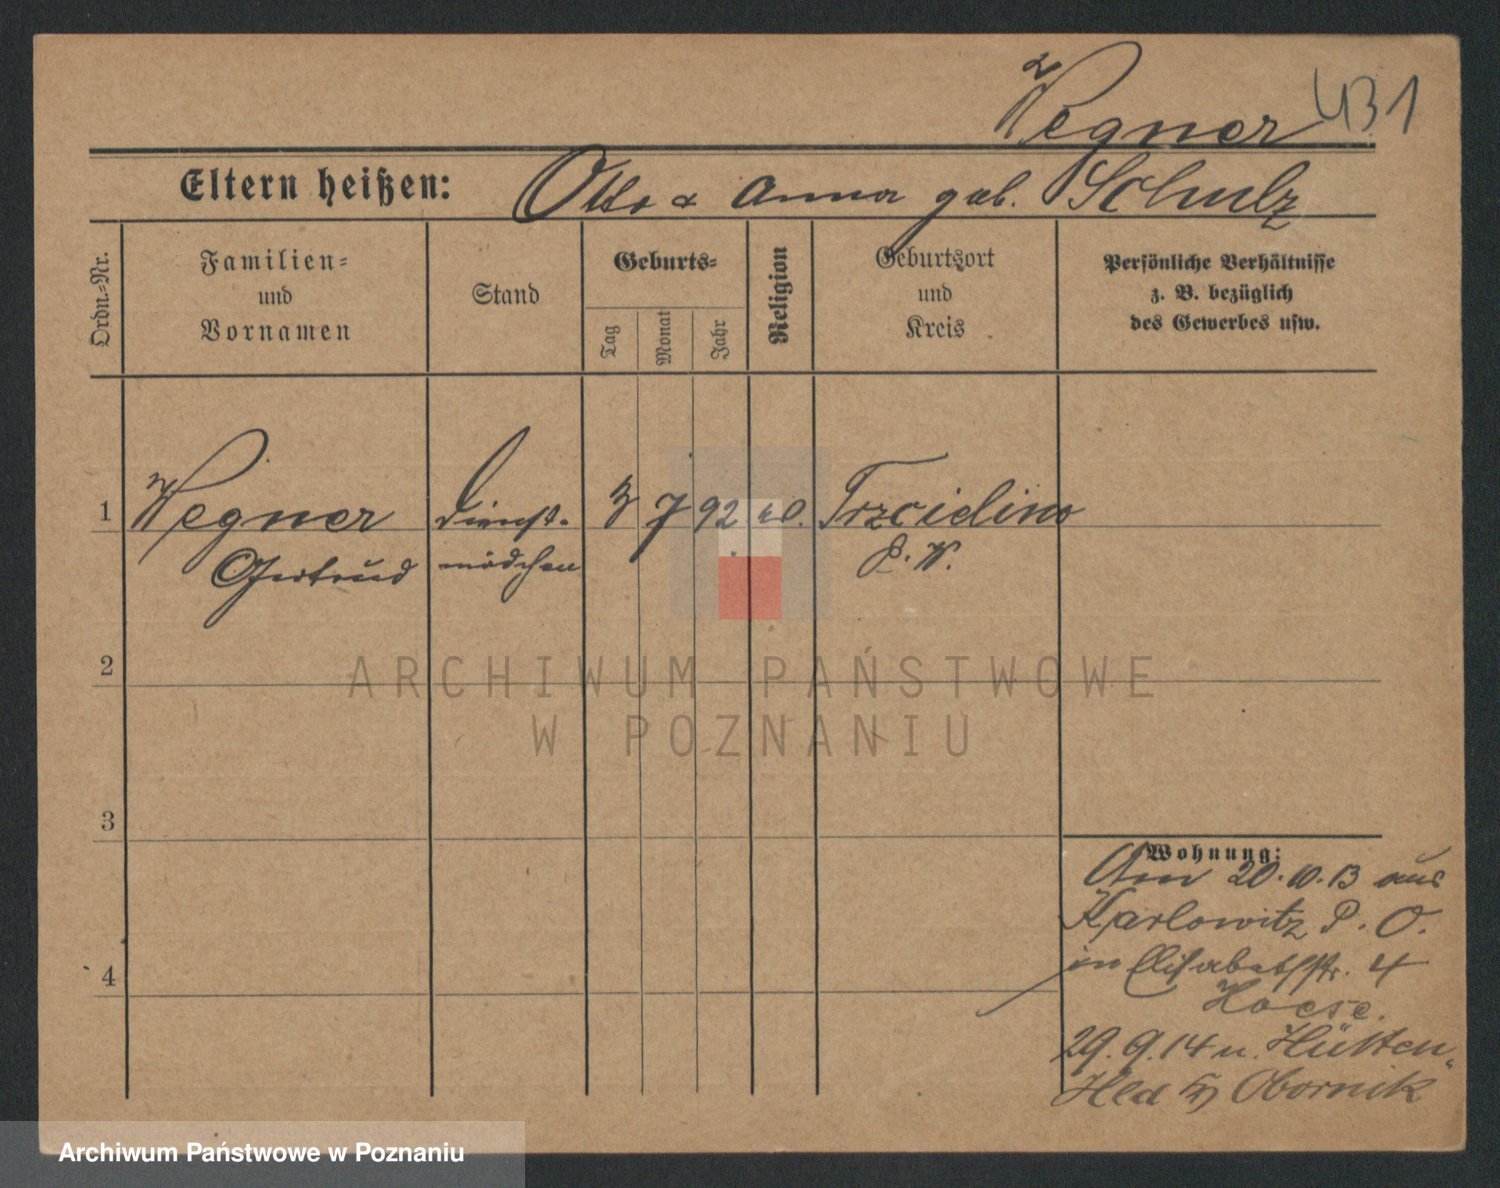 Wegner 431
Eltern heißen: Otto & Anna geb. Schulz
Ordn.-Nr.
Familien-
und
Vornamen
Stand
Geburts-
Tag
Monat
Jahr
Religion
Geburtsort
und
Kreis
Persönliche Verhältnisse
z. B. bezüglich
des Gewerbes usw.
1 Wegner Dienst- 3 7 92 ev. Trzcielino
Gertrud mädchen P. W.
2
3
4
Wohnung:
Am 20.10.13 aus
Karlowitz P. O.
in Elisabethstr. 4
29.9.14 n. Hütten-
Obornik
ARCHIWUM PAŃSTWOWE
W POZNANIU
Archiwum Państwowe w Poznaniu